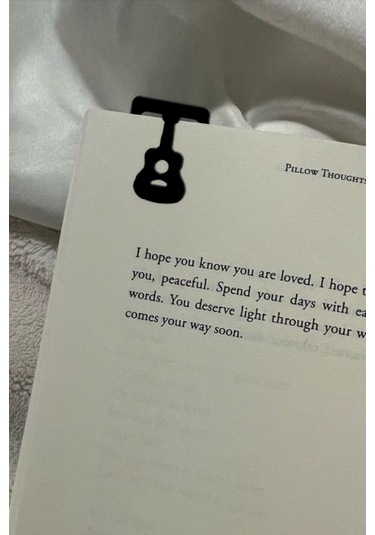 PILLOW THOUGHTS
I hope you know you are loved. I hope
you, peaceful. Spend your days with
words. You deserve light through your
comes your way soon.